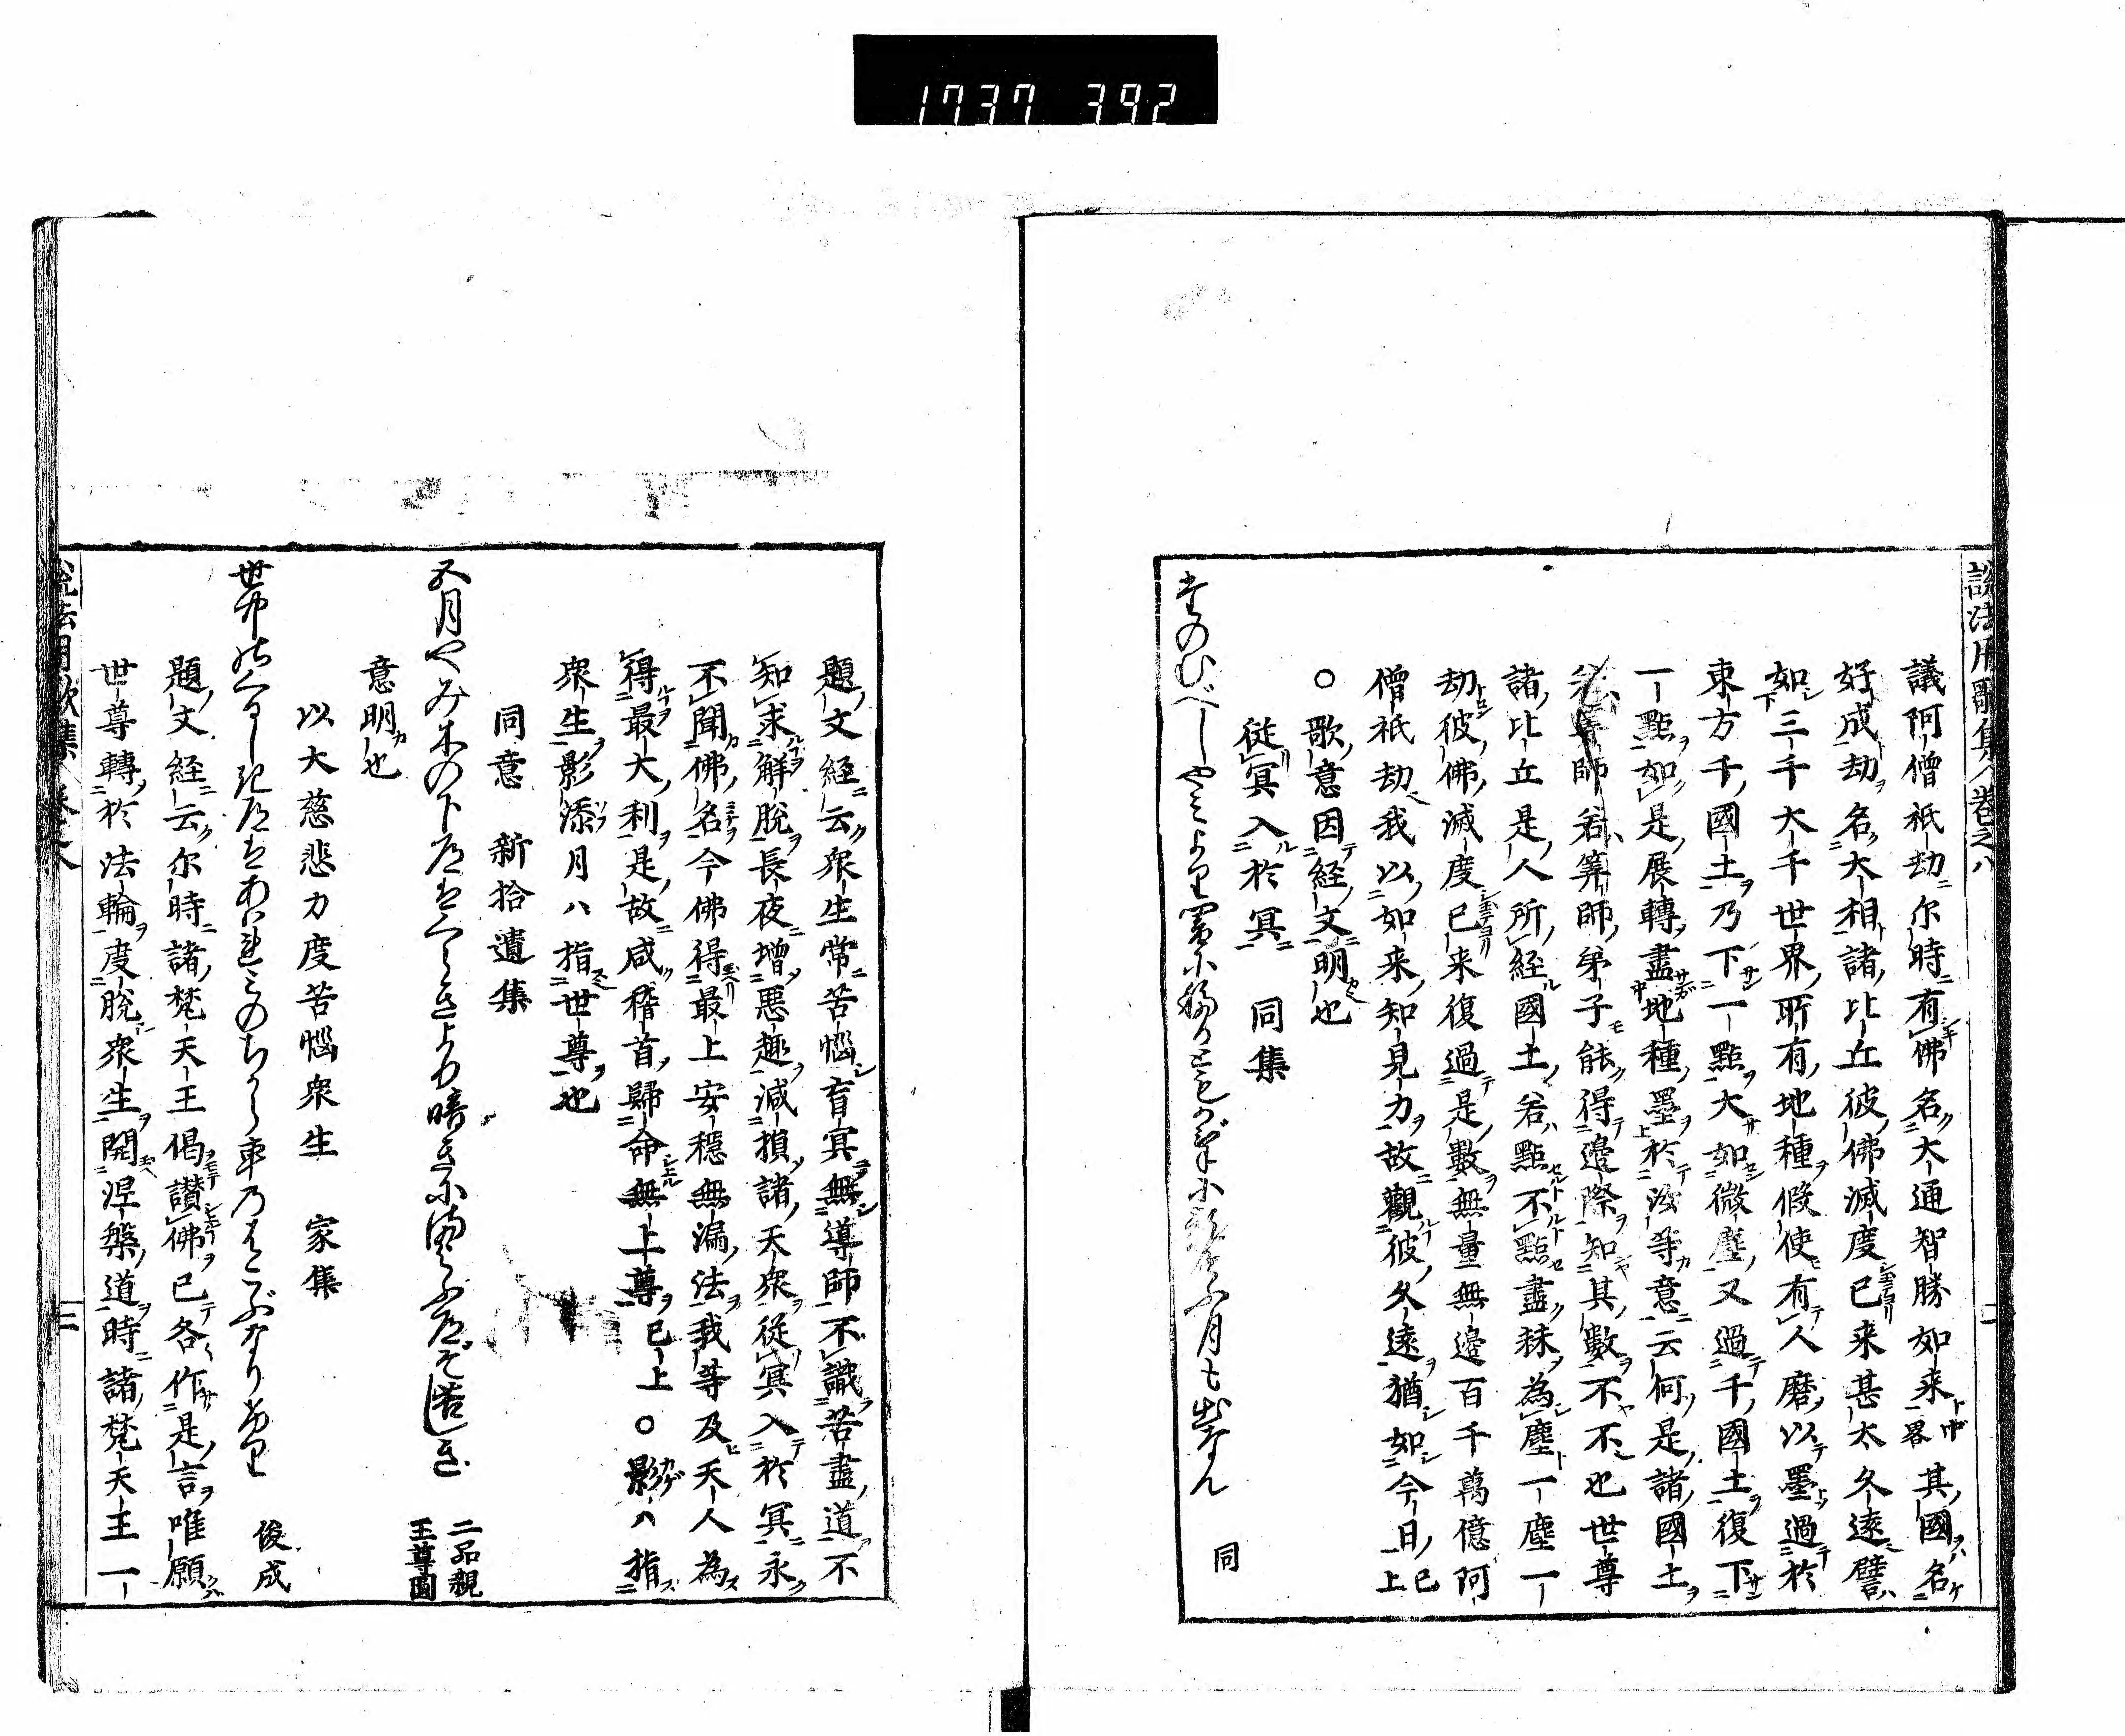 1737 392
説法用歌集 巻之八 二
議阿僧祇劫尓時有佛名大通智勝如来中畧其國名
好成劫名大相諸比丘彼佛滅度已来甚大久遠譬
如三千大千世界所有地種假使有人磨以墨過於
東方千國土乃下一點大如微塵又過千國土復下
一點如是展轉盡地種墨於汝等意云何是諸國土
若算師若筭師弟子能得邉際知其數不不也世尊
諸比丘是人所経國土若點不點盡抹為塵一塵一
劫彼佛滅度已来復過是數無量無邉百千萬億阿
僧祇劫我以如来知見力故觀彼久遠猶如今日已上
○歌意因経文明也
従冥入於冥 同集
月も出なん 同
題文経云衆生常苦惱盲冥無導師不識苦盡道不
知求解脱長夜増悪趣減損諸天衆従冥入於冥永
不聞佛名今佛得最上安穏無漏法我等及天人為
得最大利是故咸稽首歸命無上尊已上○影ハ指
衆生影添月ハ指世尊也
同意 新拾遺集
五月やみ木の下道はくらきより暗きに満よふ道ぞ遥き 二品親王尊圓
意明也
以大慈悲力度苦惱衆生 家集
俊成
題文経云尓時諸梵天王偈讃佛已各作是言唯願
世尊轉於法輪度脱衆生開涅槃道時諸梵天王一
説法用歌集 巻之八 三